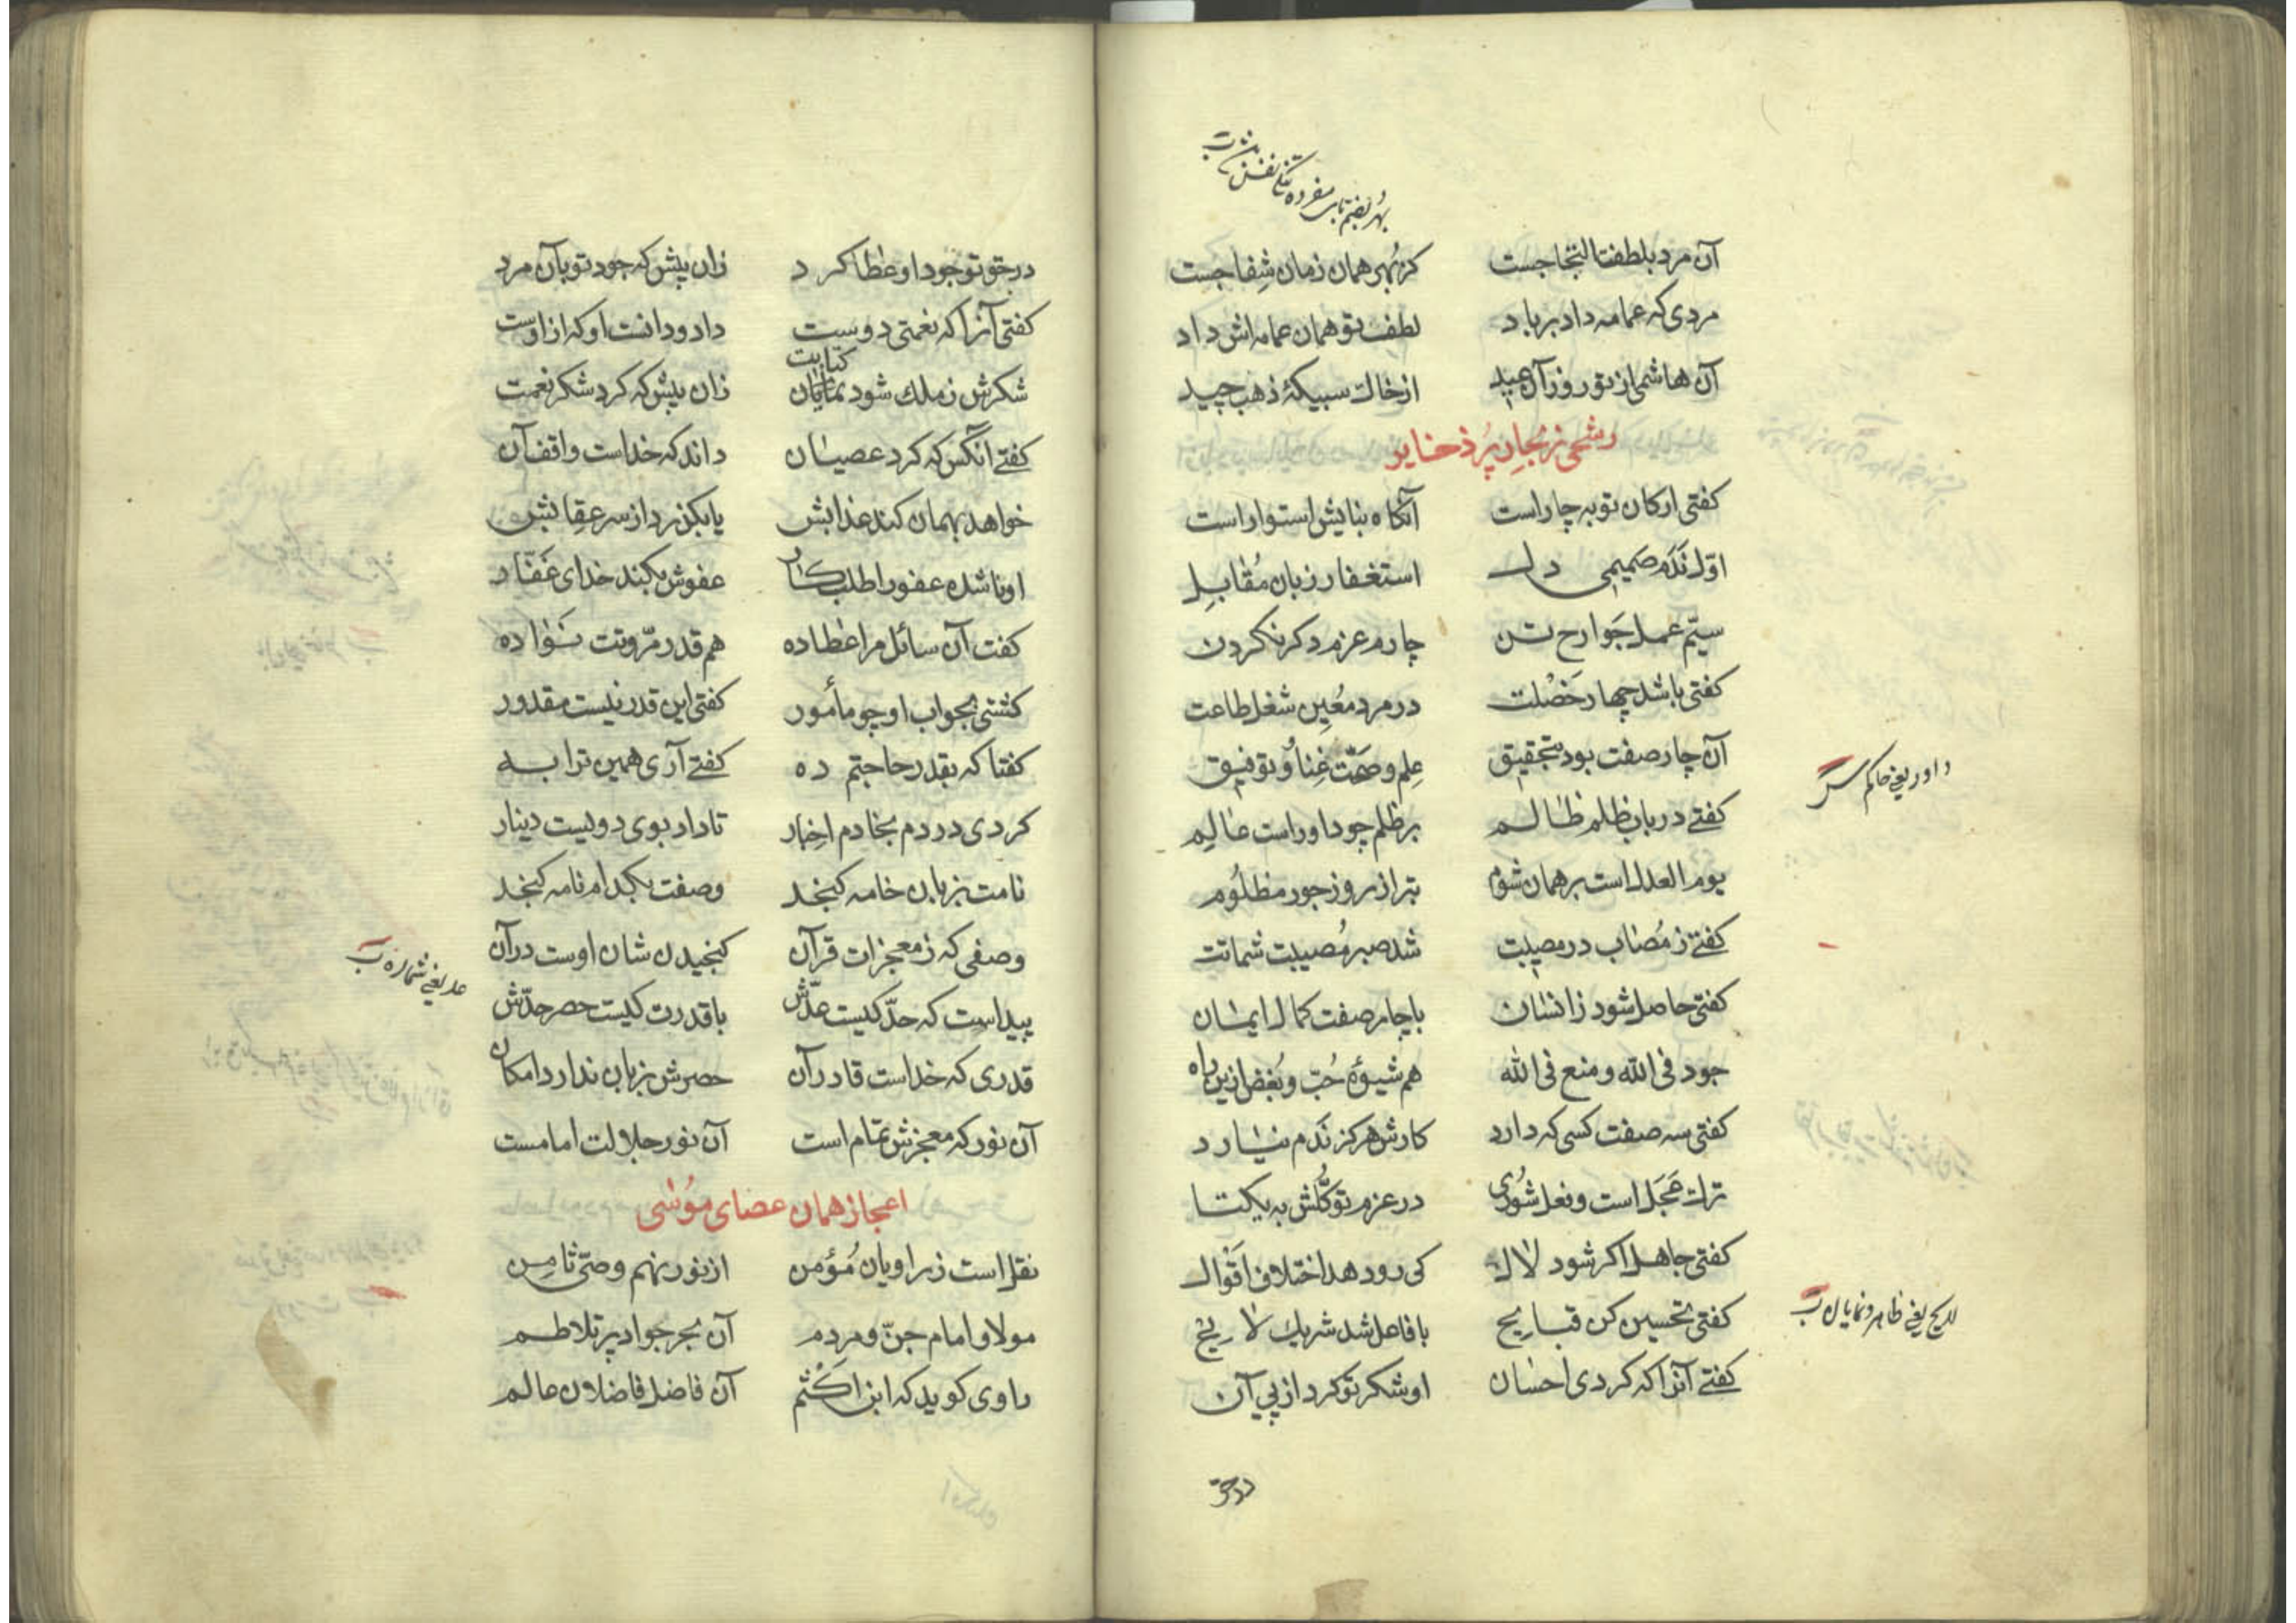 بهر بضم تای مفرده تنگی نفس
آن مرد بلطفت التجا جست کز بُهر همان زمان شِفا جست
مردی که عمامه داد بر باد لطف تو همان عمامه‌اش داد
آن هاشمی از تو روز آن عید از خاک سبیکهٔ ذهب چید
رشحی ز بحارِ پُر ذخایر
کفتی ارکان توبه چار است آنگاه بنایش استوار است
اوّل نَدَم صمیمی دل استغفار زبان مُقابِل
سیّم عمل جَوارح تن چارم عزم دکر نکردن
کفتی باشد چهار خَصْلت در مرد مُعین شغل طاعت
آن چار صفت بود بتحقیق عِلم و صحّت غِنا و توفیق
کفتی در باب ظلم ظالم بر ظلم چو داور است عالِم
یوم العدل است بر همان شوم بتر از روز جور مظلُوم
کفتی ز مُصاب در مصیبت شد صبر مُصیبت شماتت
کفتی حاصل شود ز انسان با چار صفت کمال ایمان
جود فی الله و منع فی الله هم شیوهٔ حُبّ و بُغض ازین راه
کفتی سه صفت کسی که دارد کارش هرکز نَدَم نیارد
ترك عَجَل است و فعل شُوری در عزم توکّلش به یکتا
کفتی جاهل اکر شود لال کی رو دهد اختلاف اقوال
کفتی تحسین کن قبایح با فاعل شد شریك لایح
کفتی آنرا که کردی احسان او شکر تو کرد از پی آن
داور یعنی حاکم
لایح یعنی ظاهر و نمایان
در حق
در حق تو جود او عطا کرد زان پیش که جود تو بآن مرد
کفتی آنرا که نعمتی دوست داد و دانست او که از اوست
کتابت
شکرش ز ملك شود نمایان زان پیش که کرد شکر نعمت
کفتی آنکس که کرد عصیان داند که خداست واقف آن
خواهد بهمان کند عذابش یا بکذرد از سر عِقابش
او ناشده عفو را طلبکار عفوش بکند خدای غَفّار
کفت آن سائل مرا عطا ده هم قدر مرّوتت نَوا ده
کشتی بجواب او چو مأمور کفتی این قدر نیست مقدور
کفتا که بقدر حاجتم ده کفتی آری همین ترا به
کردی در دم بخادم اِخبار تا داد بوی دویست دینار
نامت بزبان خامه کنجد وصفت بکدام نامه کنجد
وصفی که ز معجزات قرآن کنجیدن شان اوست در آن
پیداست که حدّ کیست عدّش با قدرت کیست حصر حدّش
قدری که خداست قادر آن حصرش بزبان ندارد امکان
آن نور که معجزش تمام است آن نور جلالت امامست
عد یعنی شماره
اعجاز همان عصای موُسی
نقل است ز راویان مُؤمن از نور نهم وصیّ ثامِن
مولا و امام جنّ و مردم آن بحر جواد پر تلاطم
راوی کوید که ابن اَکْثم آن فاضل فاضلان عالم